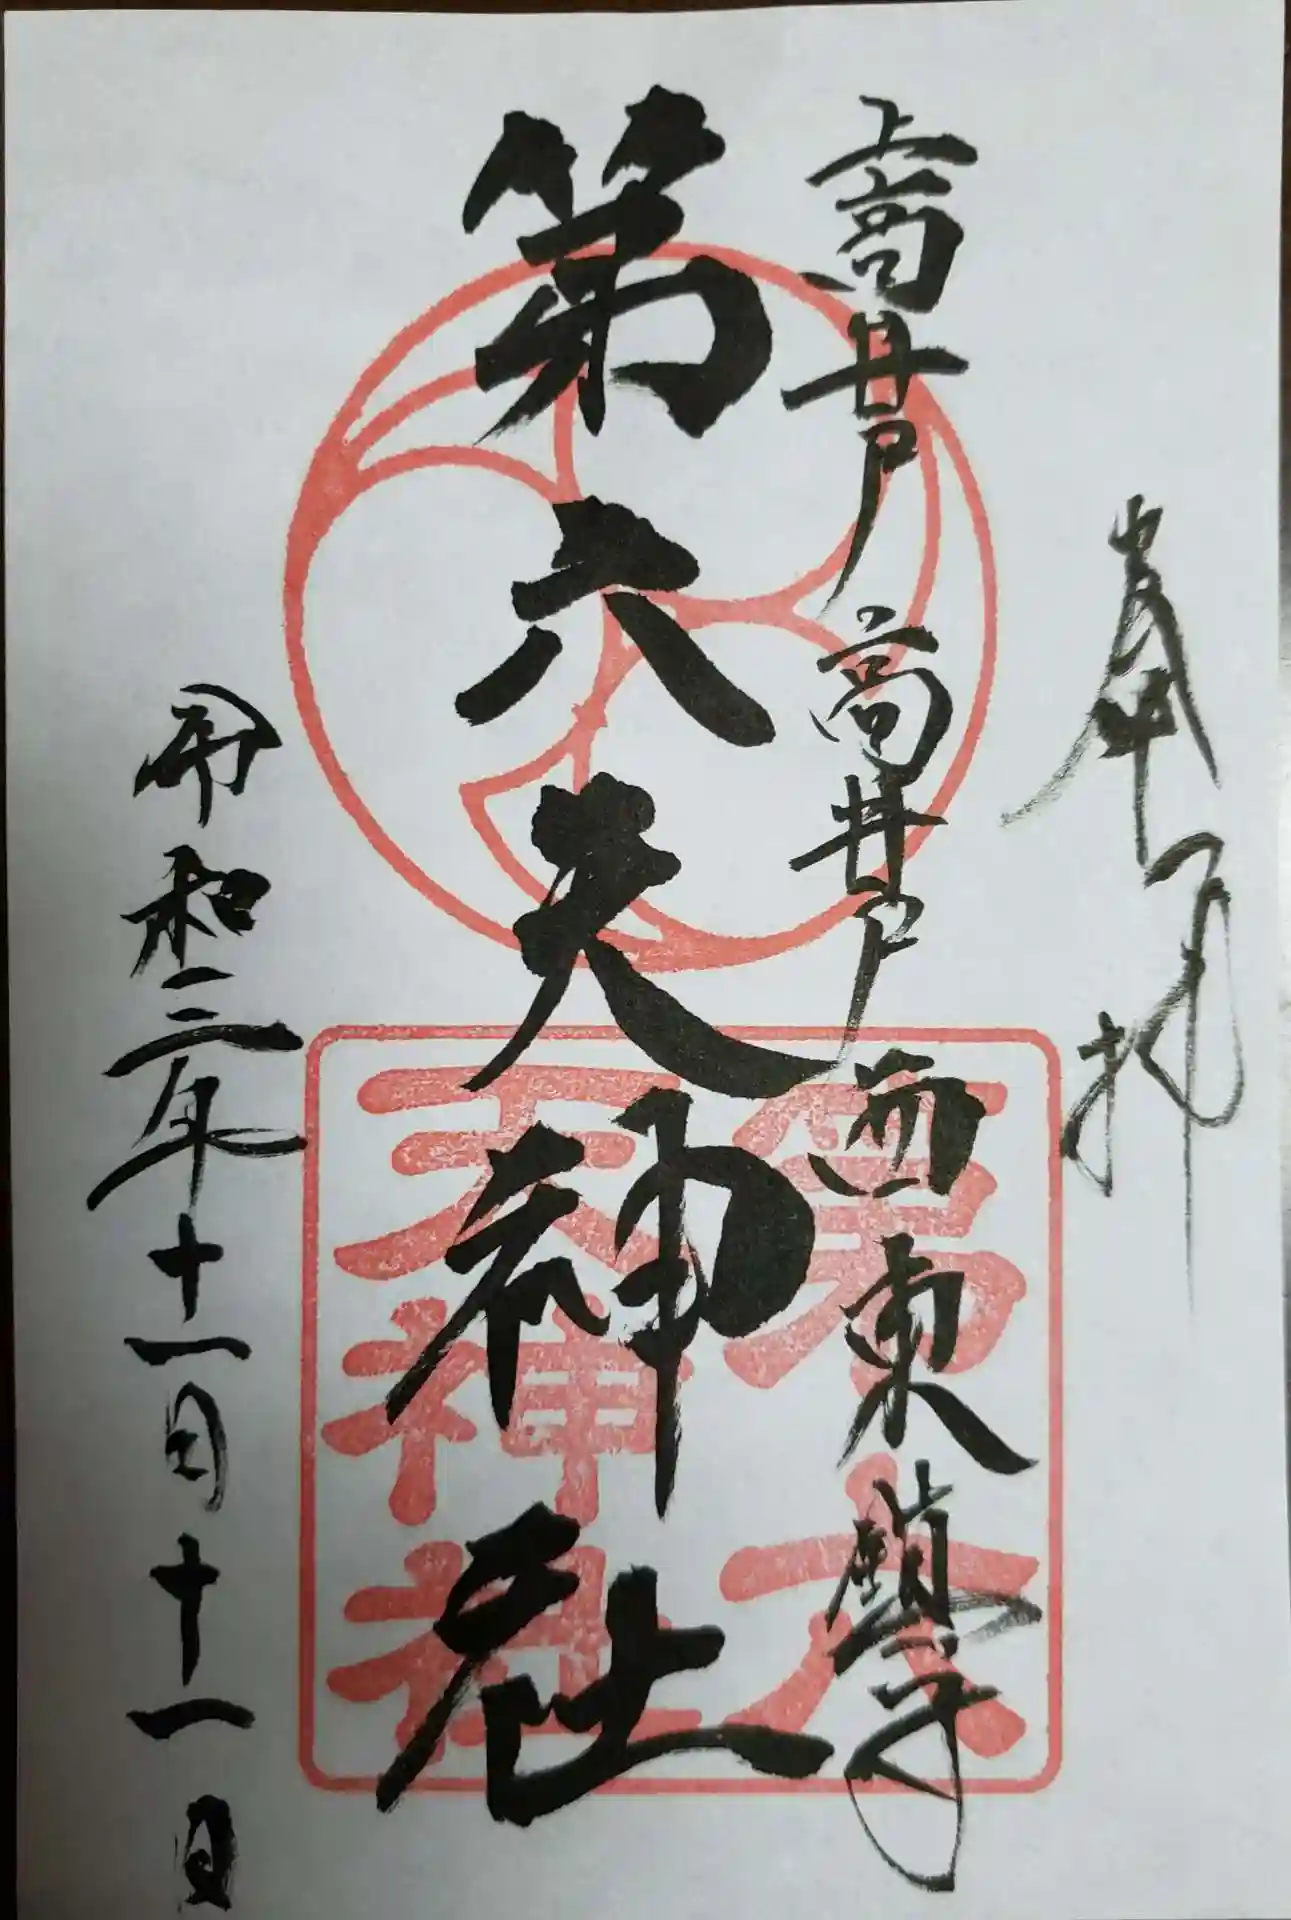 奉拝
上高井戸 高井戸西東鎮守
第六天神社
令和三年十一月十一日
第六
天神社